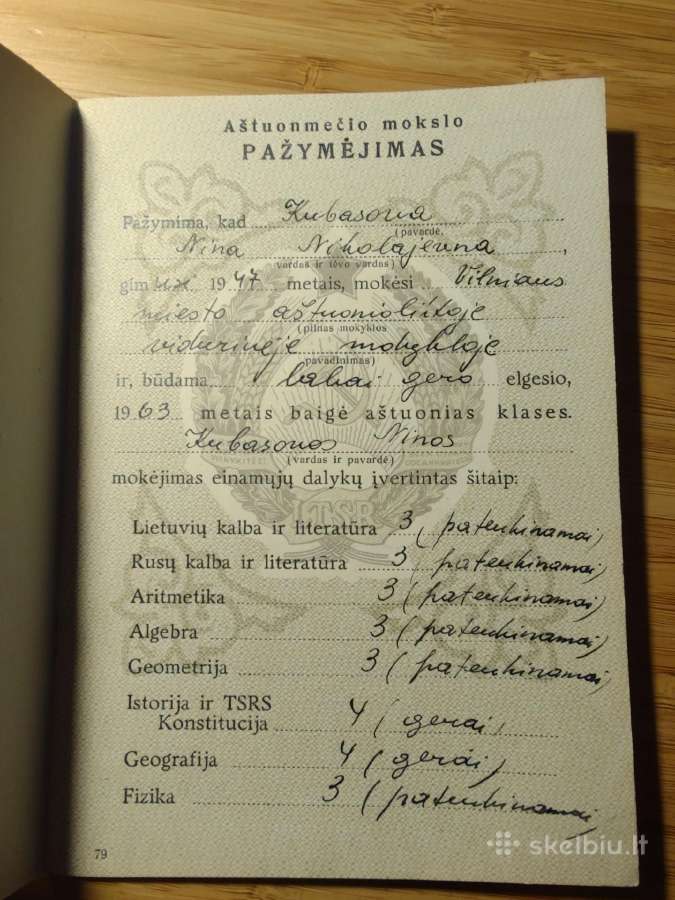 Aštuonmečio mokslo
PAŽYMĖJIMAS
Pažymima, kad Kubasova
(pavardė,
Nina Nikolajevna,
vardas ir tėvo vardas)
gim 1947 metais, mokėsi Vilniaus
miesto aštuonioliktoje
(pilnas mokyklos
vidurinėje mokykloje
pavadinimas)
ir, būdama labai gero elgesio,
1963 metais baigė aštuonias klases.
Kubasovos Ninos
(vardas ir pavardė)
mokėjimas einamųjų dalykų įvertintas šitaip:
LTSR
Lietuvių kalba ir literatūra 3 (patenkinamai)
Rusų kalba ir literatūra 3 (patenkinamai)
Aritmetika 3 (patenkinamai)
Algebra 3 (patenkinamai)
Geometrija 3 (patenkinamai)
Istorija ir TSRS
Konstitucija 4 (gerai)
Geografija 4 (gerai)
Fizika 3 (patenkinamai)
79
skelbiu.lt